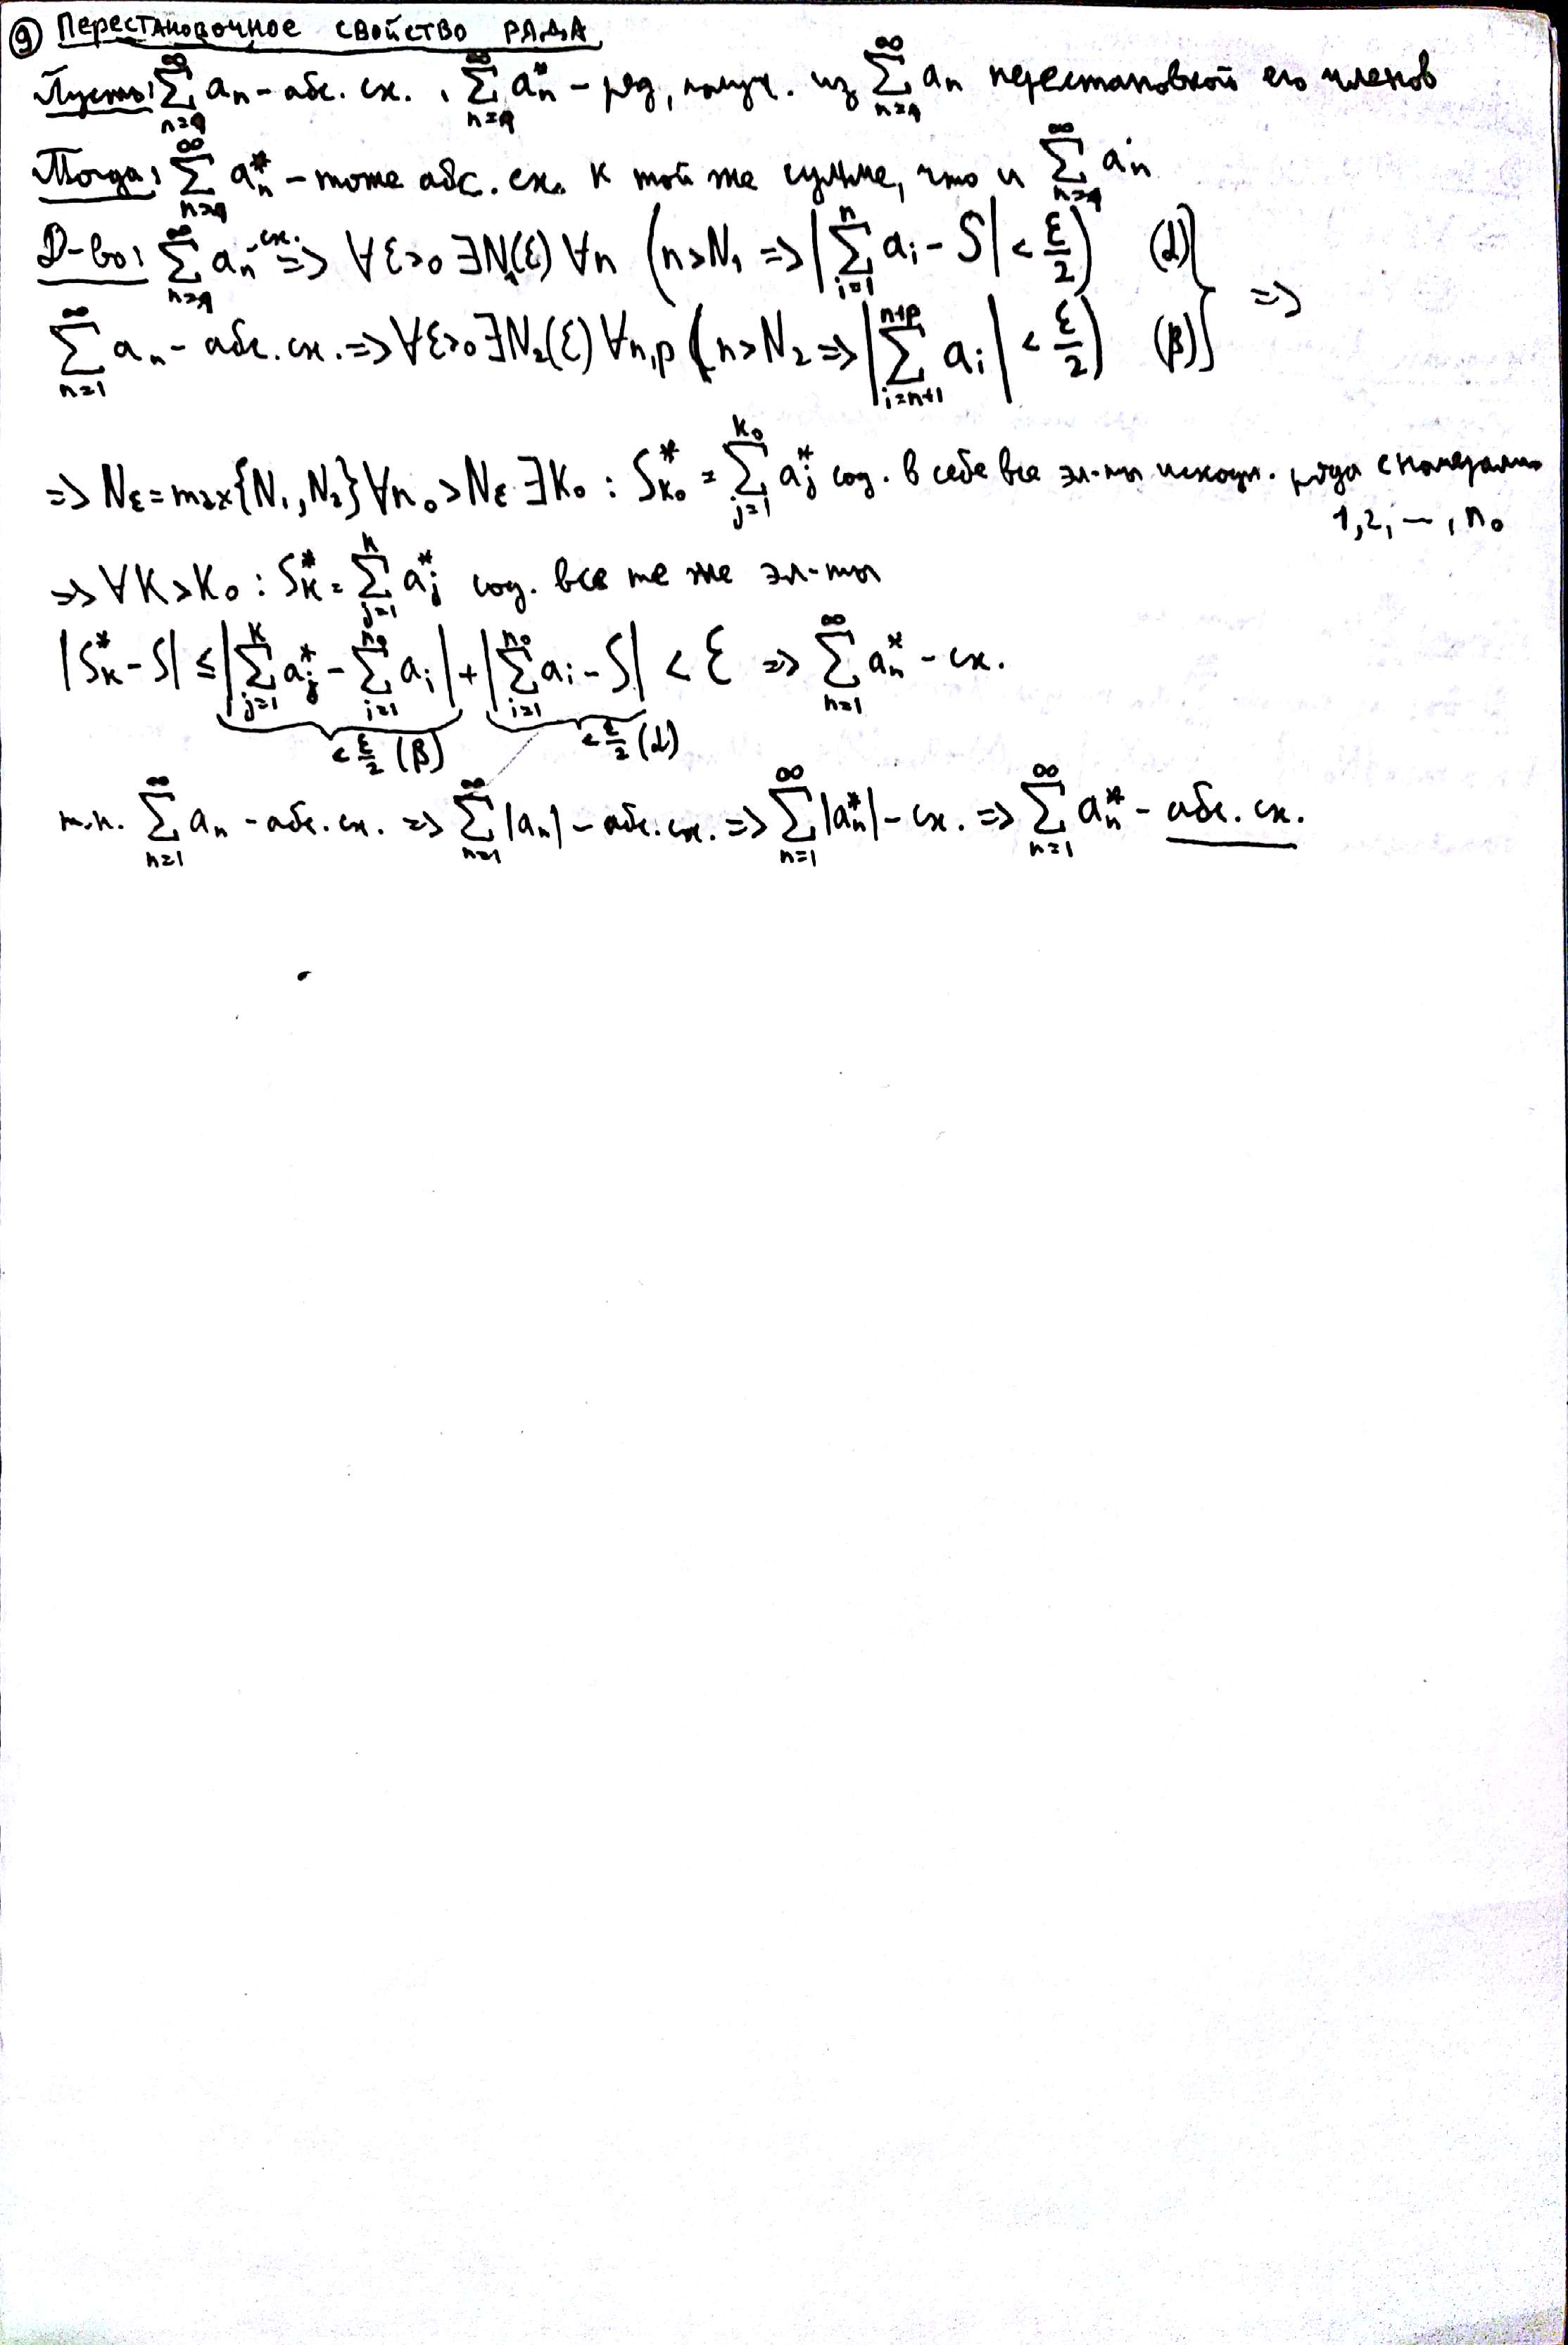 ⑨ Перестановочное свойство ряда
Пусть: ∑_{n=1}^{∞} aₙ – абс. сх., ∑_{n=1}^{∞} aₙ* – ряд, получ. из ∑_{n=1}^{∞} aₙ перестановкой его членов
Тогда: ∑_{n=1}^{∞} aₙ* – тоже абс. сх. к той же сумме, что и ∑_{n=1}^{∞} aₙ
Д-во: ∑_{n=1}^{∞} aₙ – сх. => ∀ε>0 ∃N₁(ε) ∀n (n>N₁ => |∑_{i=1}^{n} aᵢ – S| < ε/2) (α)
∑_{n=1}^{∞} aₙ – абс. сх. => ∀ε>0 ∃N₂(ε) ∀n,p (n>N₂ => |∑_{i=n+1}^{n+p} aᵢ| < ε/2) (β) } =>
=> N_ε = max{N₁, N₂} ∀n₀ > N_ε ∃k₀ : S*_{k₀} = ∑_{j=1}^{k₀} aⱼ* сод. в себе все эл-ты исходн. ряда с номерами
1, 2, –, n₀
=> ∀k>k₀ : S*ₖ = ∑_{j=1}^{k} aⱼ* сод. все те же эл-ты
|S*ₖ – S| ≤ |∑_{j=1}^{k} aⱼ* – ∑_{i=1}^{n₀} aᵢ| + |∑_{i=1}^{n₀} aᵢ – S| < ε => ∑_{n=1}^{∞} aₙ* – сх.
< ε/2 (β) < ε/2 (α)
т.к. ∑_{n=1}^{∞} aₙ – абс. сх. => ∑_{n=1}^{∞} |aₙ| – абс. сх. => ∑_{n=1}^{∞} |aₙ*| – сх. => ∑_{n=1}^{∞} aₙ* – абс. сх.